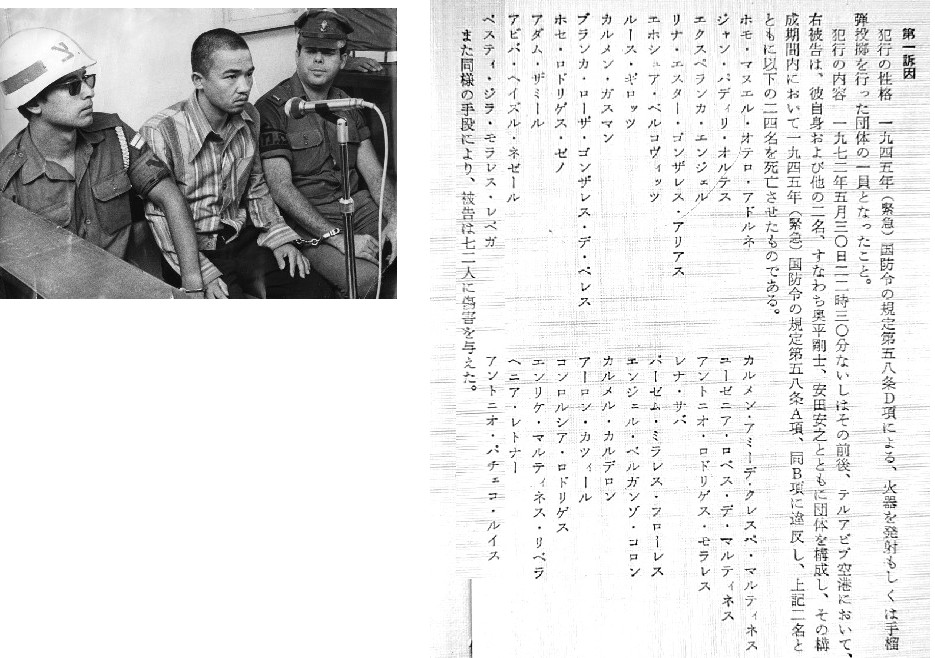 第一訴因
犯行の性格　一九四五年（緊急）国防令の規定第五八条D項による、火器を発射もしくは手榴
弾投擲を行った団体の一員となったこと。
犯行の内容　一九七二年五月三〇日二二時三〇分ないしはその前後、テルアビブ空港において、
右被告は、彼自身および他の二名、すなわち奥平剛士、安田安之とともに団体を構成し、その構
成期間内において一九四五年（緊急）国防令の規定第五八条A項、同B項に違反し、上記二名と
ともに以下の二四名を死亡させたものである。
ホモ・マヌエル・オテロ・アドルネ　カルメン・アミーデ・クレスペ・マルティネス
ジャン・パディリ・オルテス　ユーゼニア・ロペス・デ・マルティネス
エクスペランカ・エンジェル　アントニオ・ロドリゲス・モラレス
リナ・エスター・ゴンザレス・アリアス　レナ・サバ
エホシュア・ベルコヴィッツ　バーゼム・ミラレス・フローレス
ルース・ギロッツ　エンジェル・ベルガンゾ・コロン
カルメン・ガスマン　カルメル・カルデロン
ブランカ・ローザ・ゴンザレス・デ・ペレス　アーロン・カツィール
ホセ・ロドリゲス・ゼノ　コンロルシア・ロドリゲス
アダム・ザミール　エンリケ・マルティネス・リベラ
アビバ・ヘイズル・ネゼール　ヘニア・レトナー
ベスティ・ジラ・モラレス・レベガ　アントニオ・パチェコ・ルイス
また同様の手段により、被告は七二人に傷害を与えた。